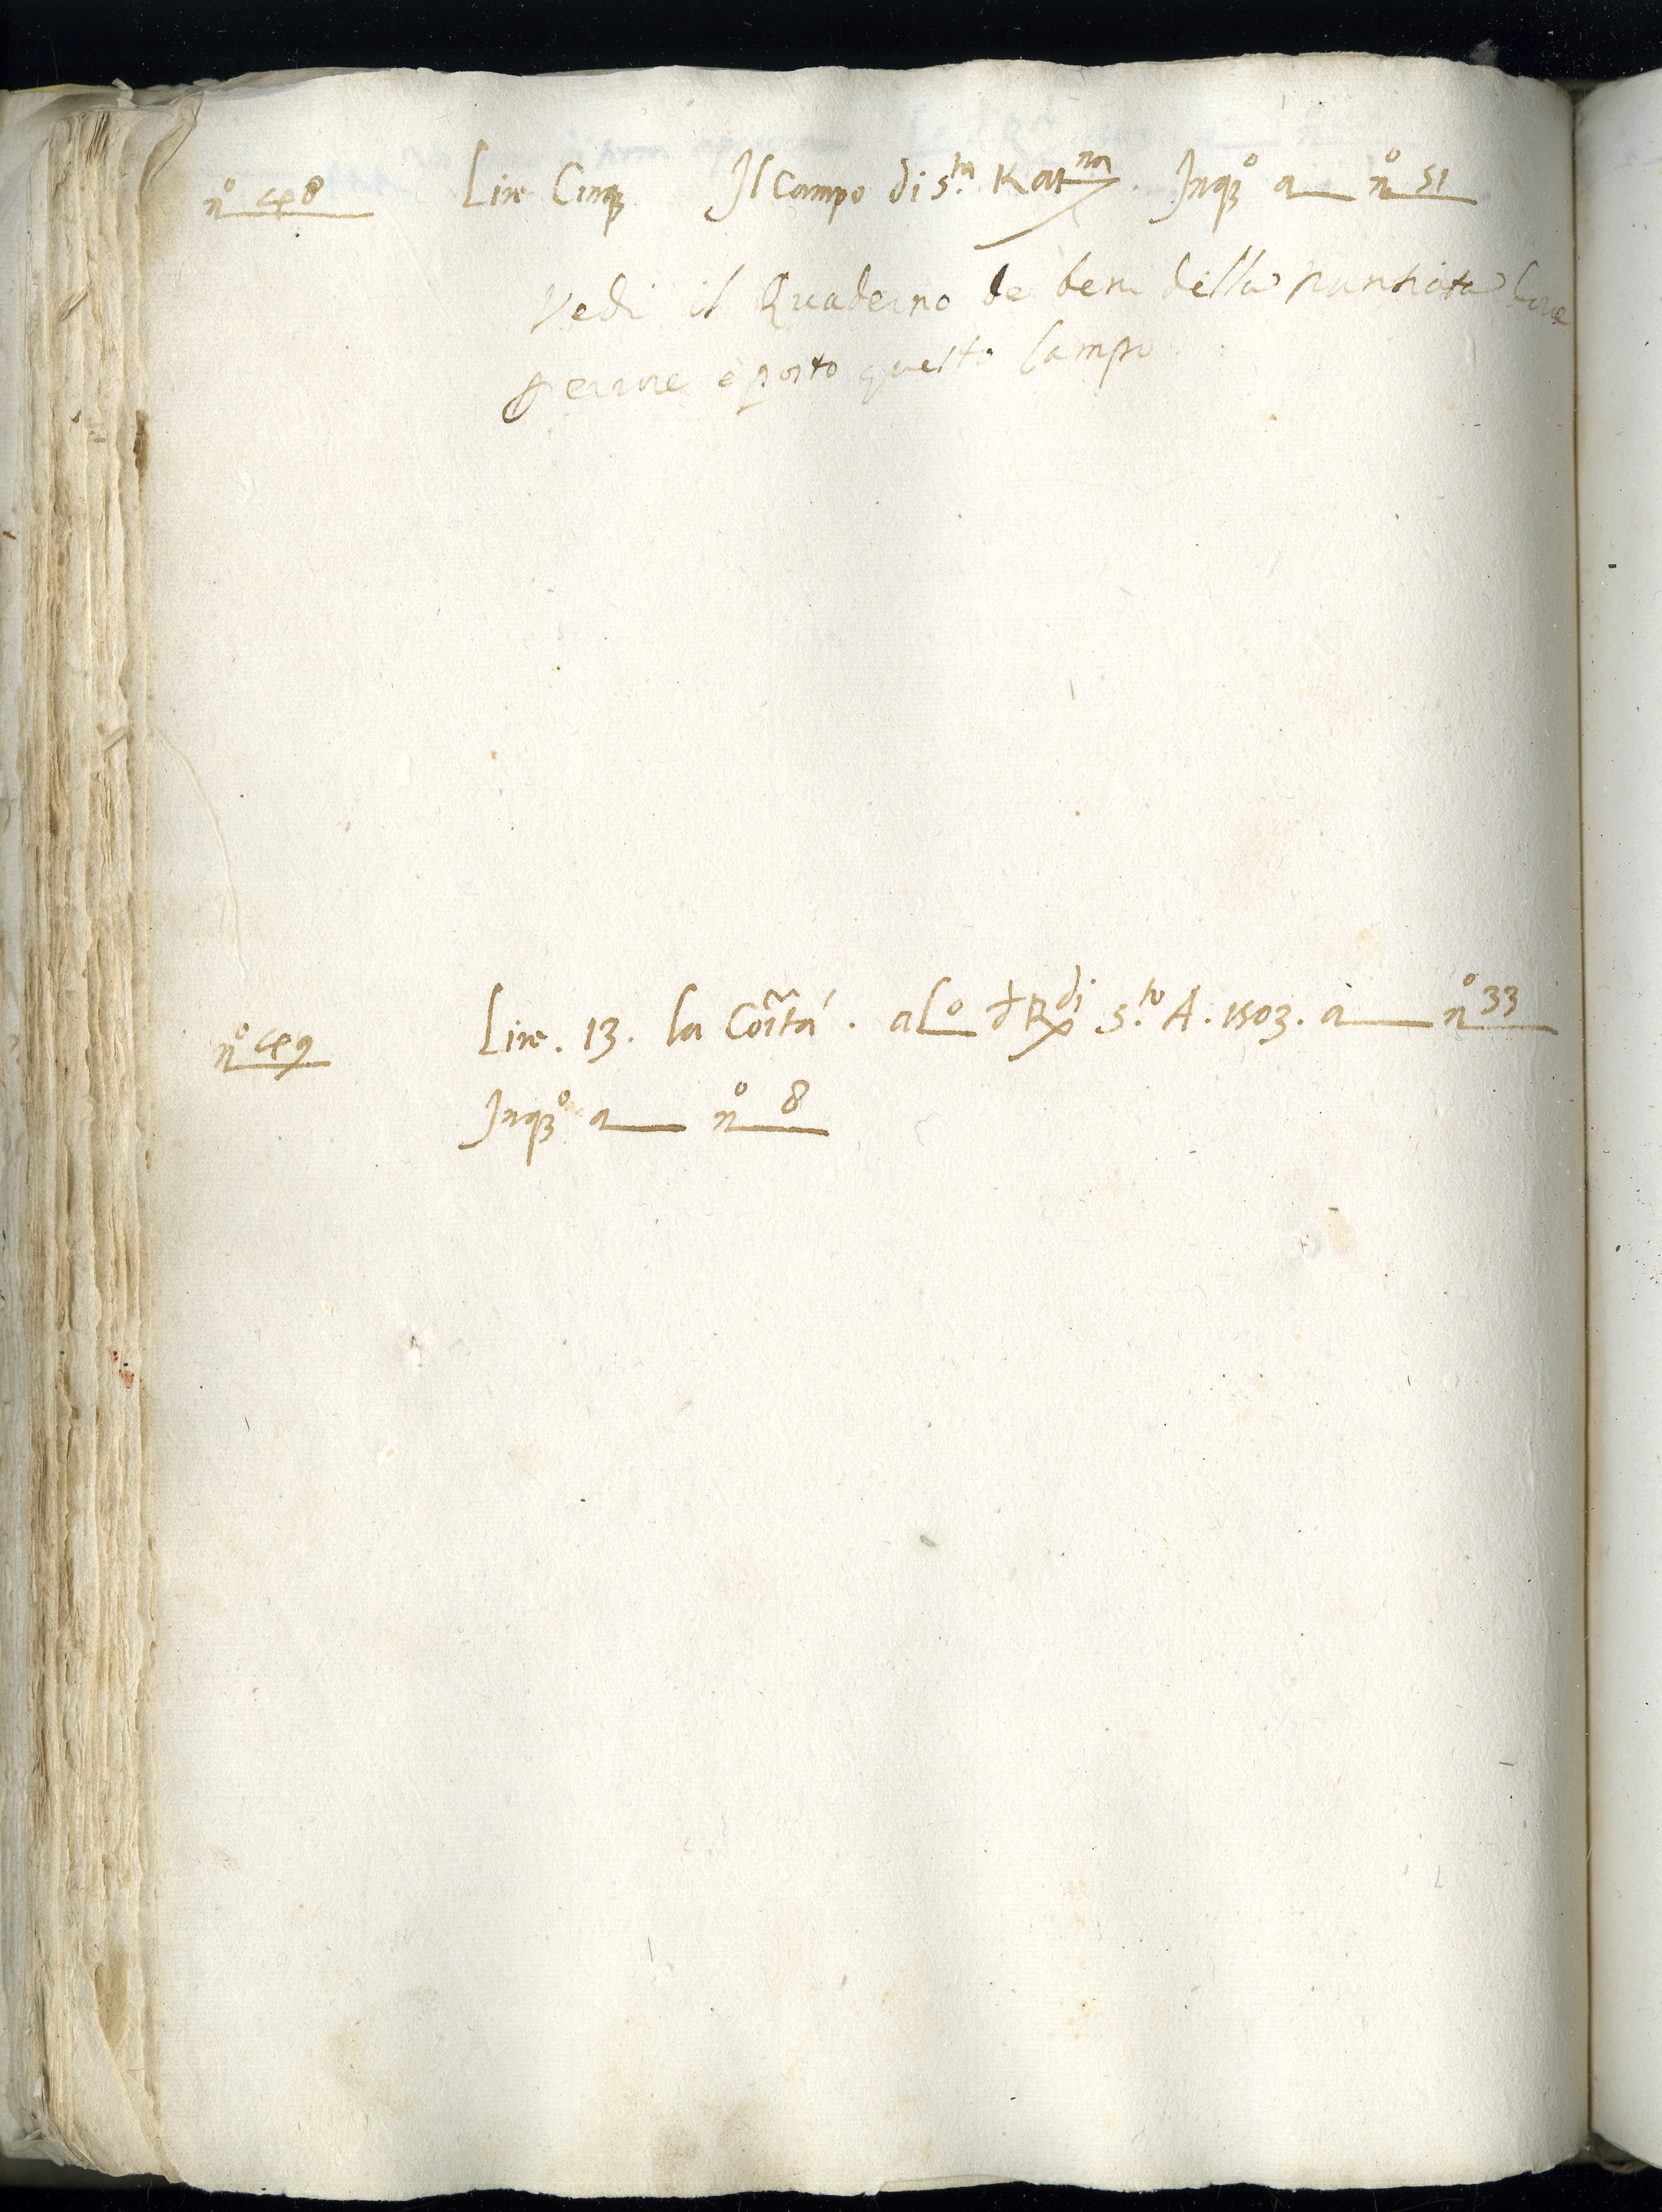 n° 48 Lire Cinq3 Il Campo di S.ta Kat.na. Inq3° a n° 51
Vedi il Quaderno de beni della Nuntiata dove
p errore è posto questo Campo
n° 49 Lire. 13. la Cõita. al° d R di S.to A. 1503. a n° 33
Inq3° a n° 8